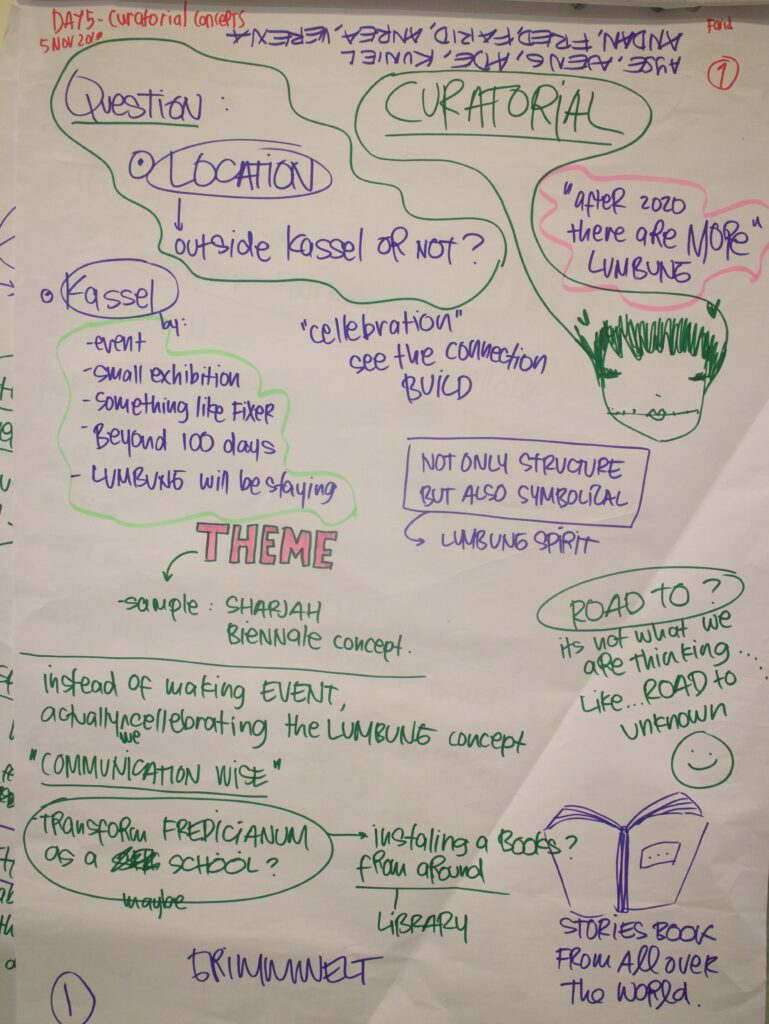 DAY 5 - Curatorial concepts
5 NOV 2019
AYSE, AJENG, ADE, KUNIEL
ANDAN, FRED, FARID, ANREA, VERENA
Farid
1
CURATORIAL
Question :
LOCATION
outside Kassel OR NOT ?
"after 2020
there are MORE"
LUMBUNG
Kassel
by:
-event
-small exhibition
-something like FIXER
-Beyond 100 days
- LUMBUNG will be staying
"cellebration"
see the connection
BUILD
NOT ONLY STRUCTURE
BUT ALSO SYMBOLICAL
LUMBUNG SPIRIT
THEME
-sample : SHARJAH
BIENNALE concept.
ROAD TO ?
its not what we
are thinking ....
Like...ROAD to
unknown
instead of making EVENT,
actually we cellebrating the LUMBUNG concept
"COMMUNICATION WISE"
-TRANSFORM FREDICIANUM
as a SCHOOL ?
maybe
-instaling a BOOKS ?
from around
LIBRARY
STORIES BOOK
FROM All over
The WORLD.
GRIMMWELT
1